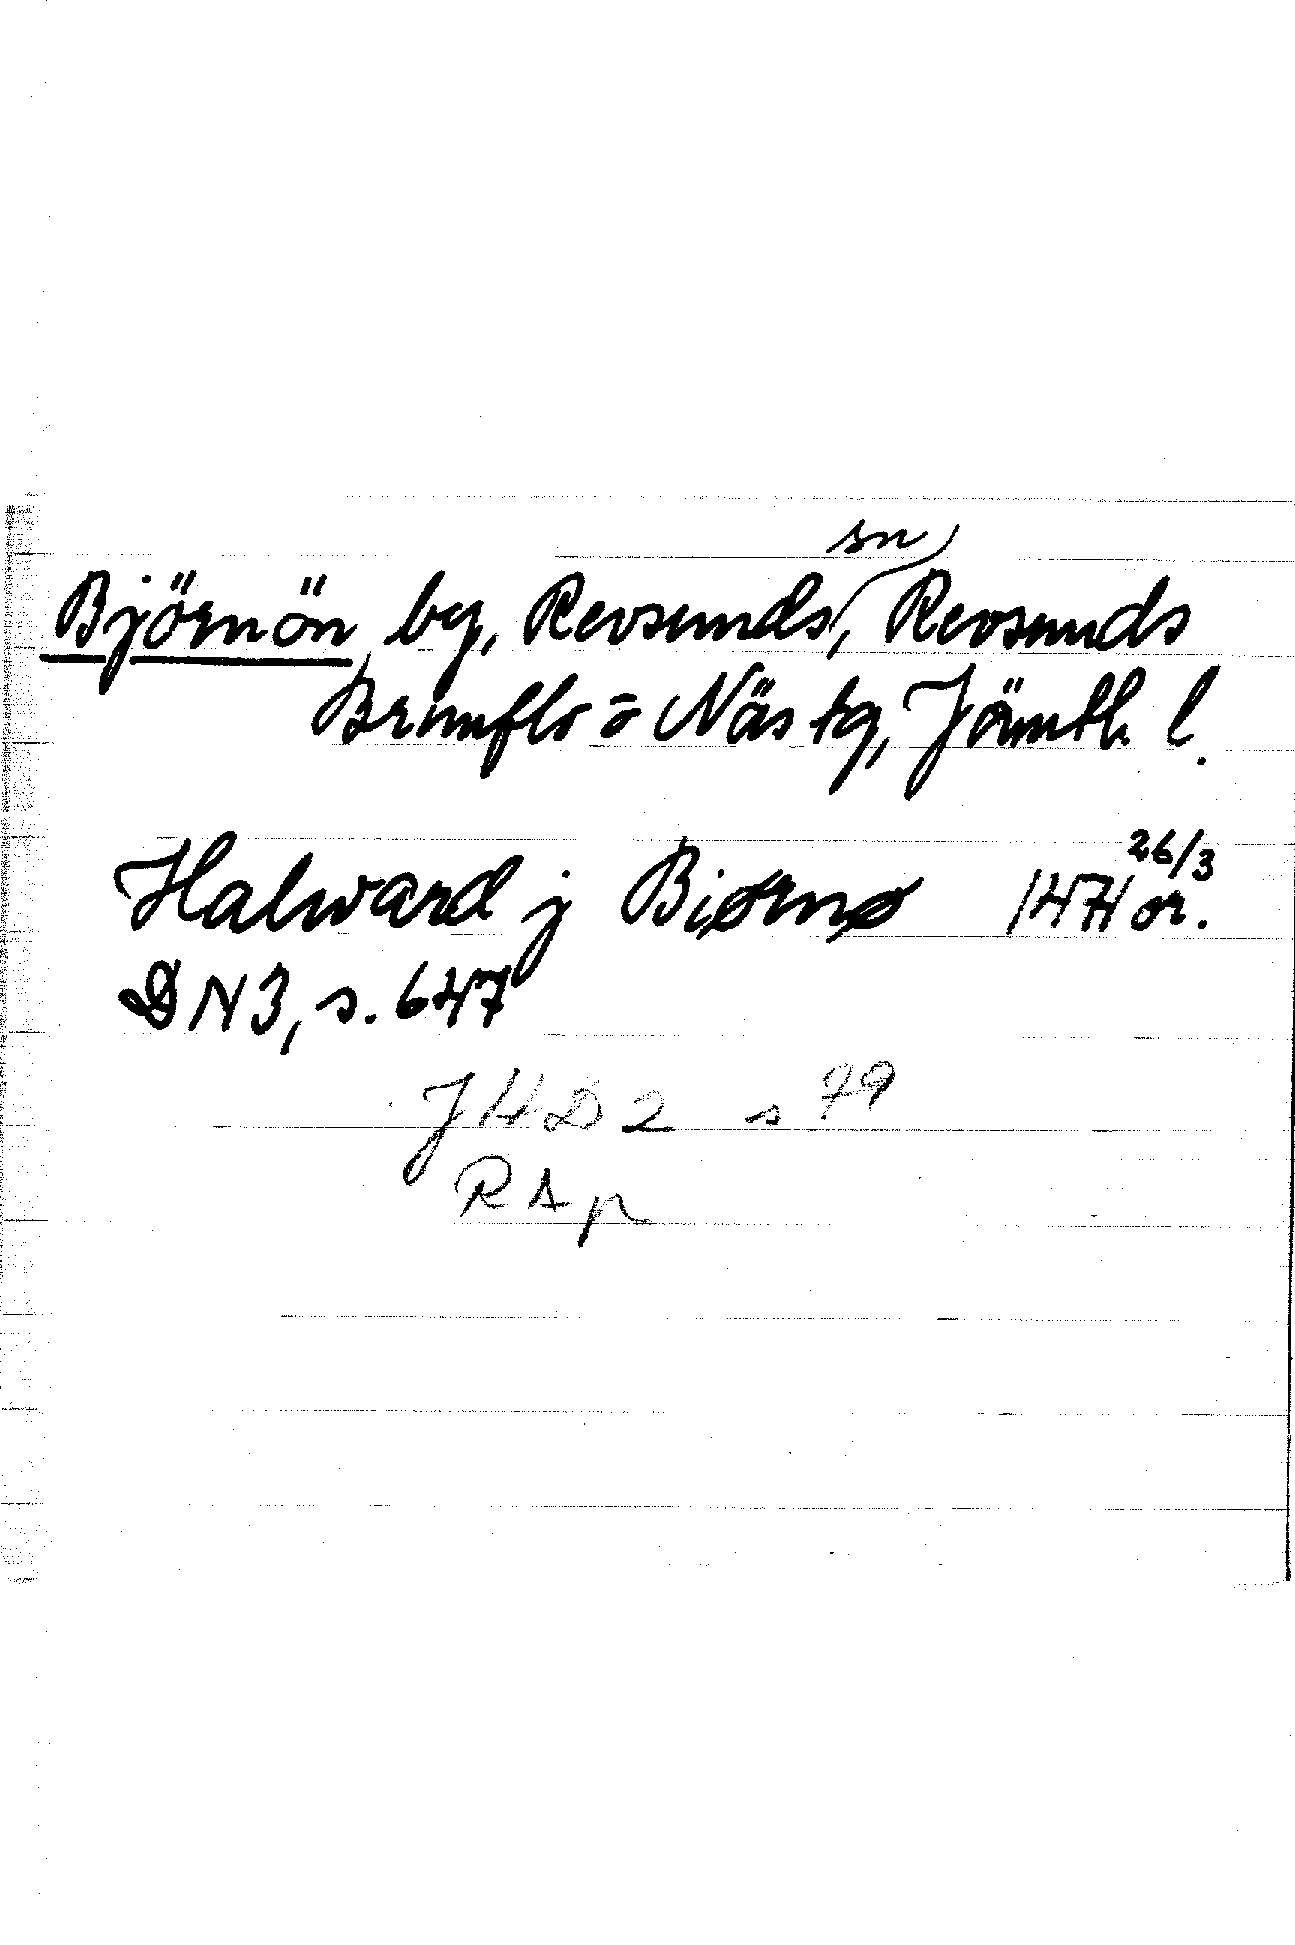 Björnön, by, Revsunds sn, Revsunds
Brunflo o Näs tg, Jämtl. l.
Halward j Biørnø 1474 26/3 or.
DN3, s. 647
JHD2 s 79
RAp